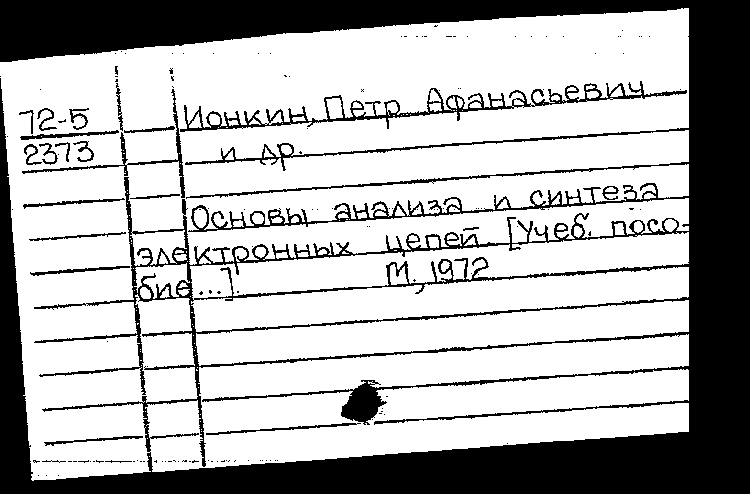 72-5 Ионкин, Петр Афанасьевич
2373 и др.
Основы анализа и синтеза
электронных цепей. [Учеб. посо-
бие...]. М., 1972